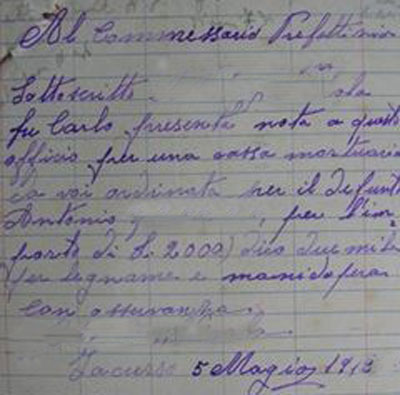 Al Commessario Prefettizio
Sottoscritto
fu Carlo presenta nota a questo
officio per una cassa mortuaria
da voi ordinata per il defunto
Antonio per l'im
porto di L. 2000) dico due mila
per legname e manidopera
Con osservanza
5 Magio